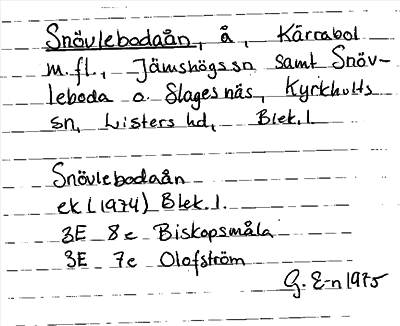 Snövlebodaån, å, Kärrabol
m.fl., Jämshögs sn samt Snöv-
leboda o. Slagesnäs, Kyrkhults
sn, Listers hd, Blek.l.
Snövlebodaån
ek (1974) Blek.l.
3E 8e Biskopsmåla
3E 7e Olofström
G. E-n 1975